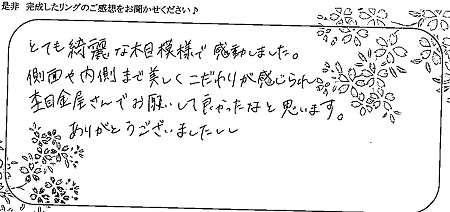 是非 完成したリングのご感想をお聞かせください♪
とても綺麗な木目模様で感動しました。
側面や内側まで美しくこだわりが感じられ
杢目金屋さんでお願いして良かったなと思います。
ありがとうございました